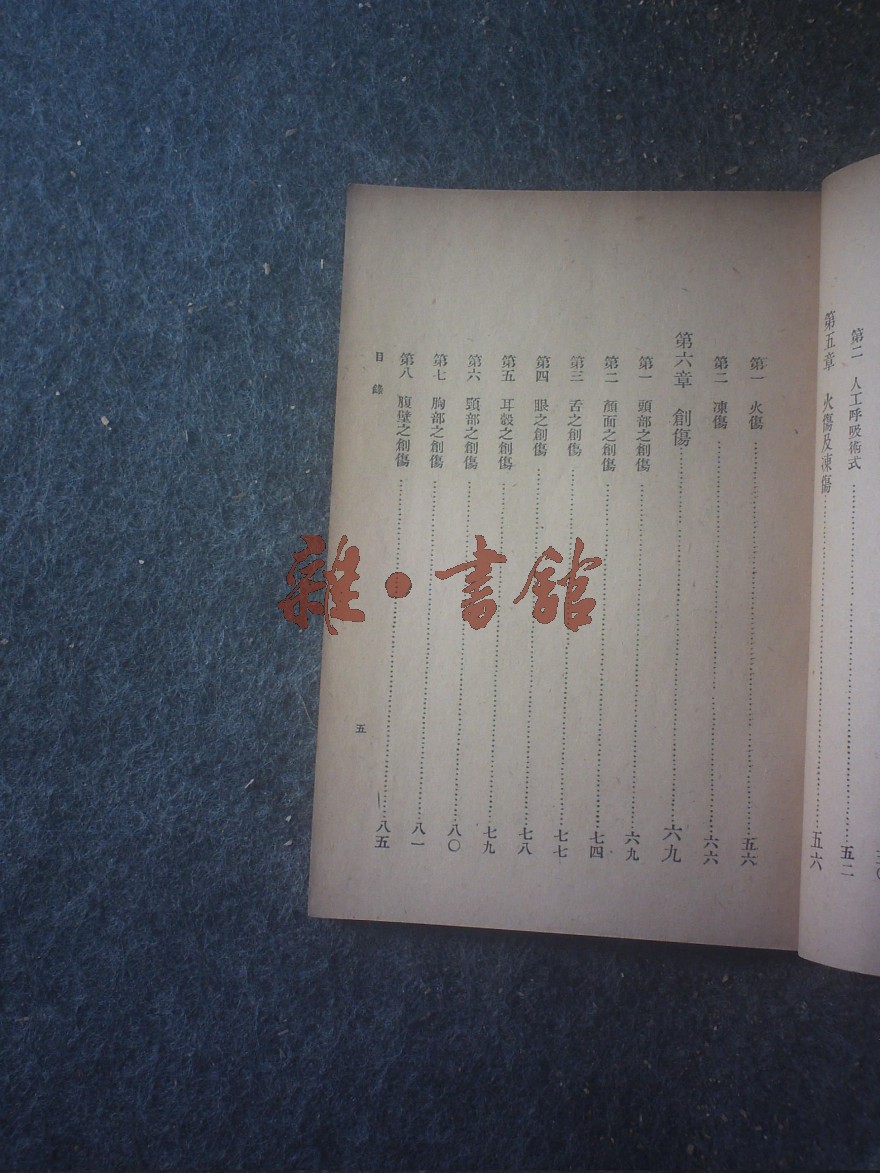 第二　人工呼吸術式……五二
第五章　火傷及凍傷……五六
第一　火傷……五六
第二　凍傷……六六
第六章　創傷……六九
第一　頭部之創傷……六九
第二　顏面之創傷……七四
第三　舌之創傷……七七
第四　眼之創傷……七八
第五　耳殼之創傷……七九
第六　頸部之創傷……八〇
第七　胸部之創傷……八一
第八　腹壁之創傷……八五
目錄
五
雜·書館